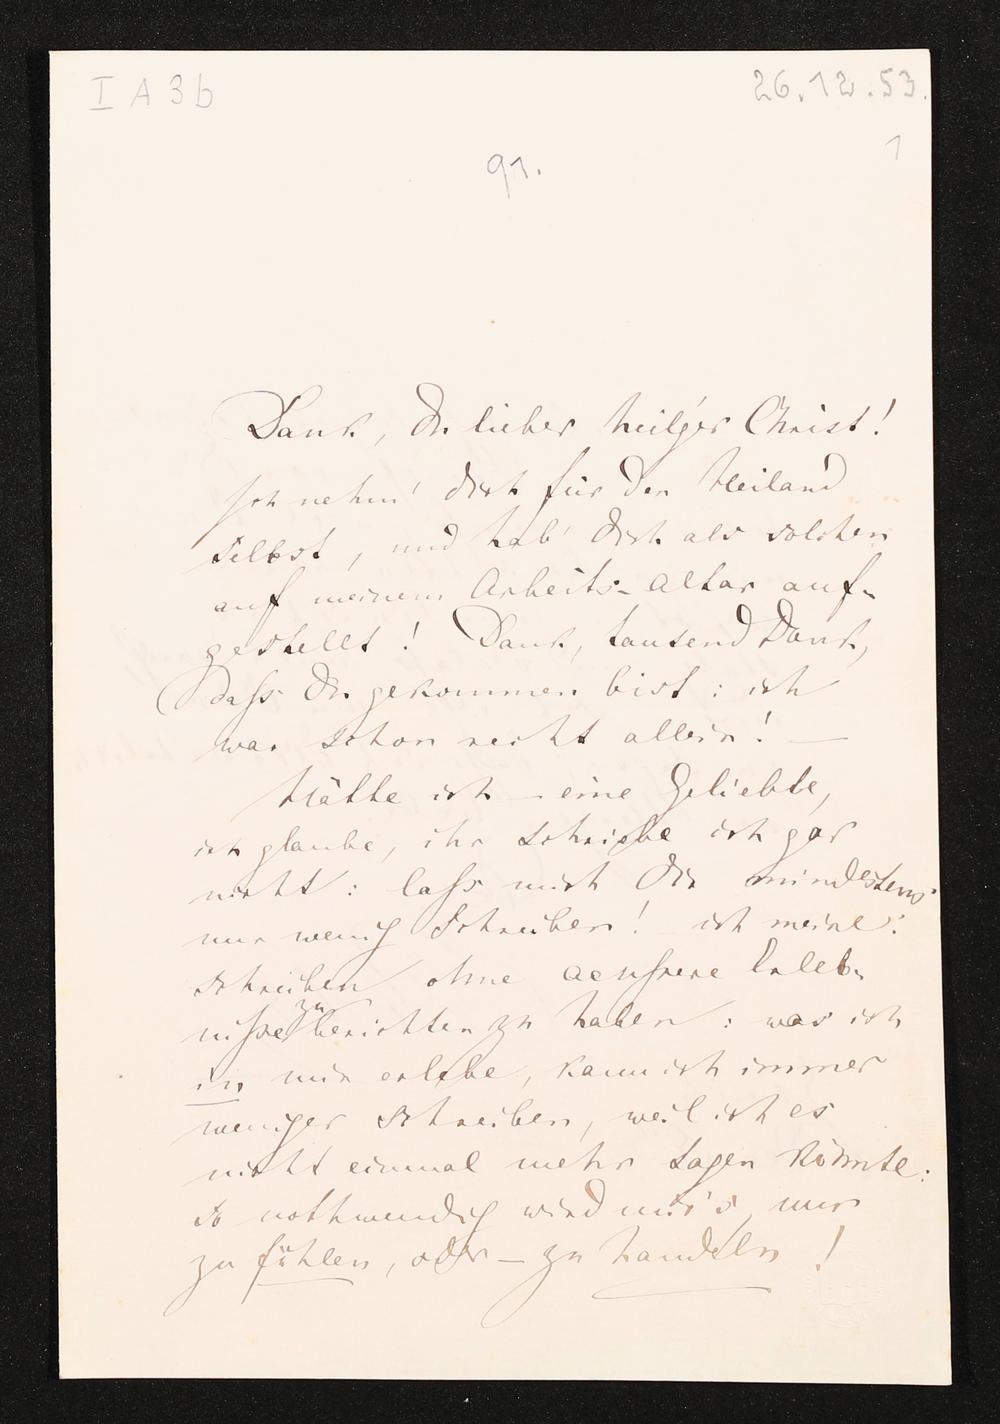 I A 3 b
26.12.53.
1
91.
Dank, Du lieber heil'ger Christ!
Ich nehm' dich für den Heiland
selbst, und hab' dich als solchen
auf meinem Arbeits-Altar auf-
gestellt! Dank, tausend Dank,
dass Du gekommen bist: ich
war schon recht allein! —
Hätte ich – eine Geliebte,
ich glaube, ihr schriebe ich gar
nicht: lass mich Dir mindestens
nur wenig schreiben! – ich meine:
schreiben ohne aeussere Erleb-
nisse zu berichten zu haben: was ich
in mir erlebe, kann ich immer
weniger schreiben, weil ich es
nicht einmal mehr sagen könnte:
so nothwendig wird mir's nur
zu fühlen, oder – zu handeln!